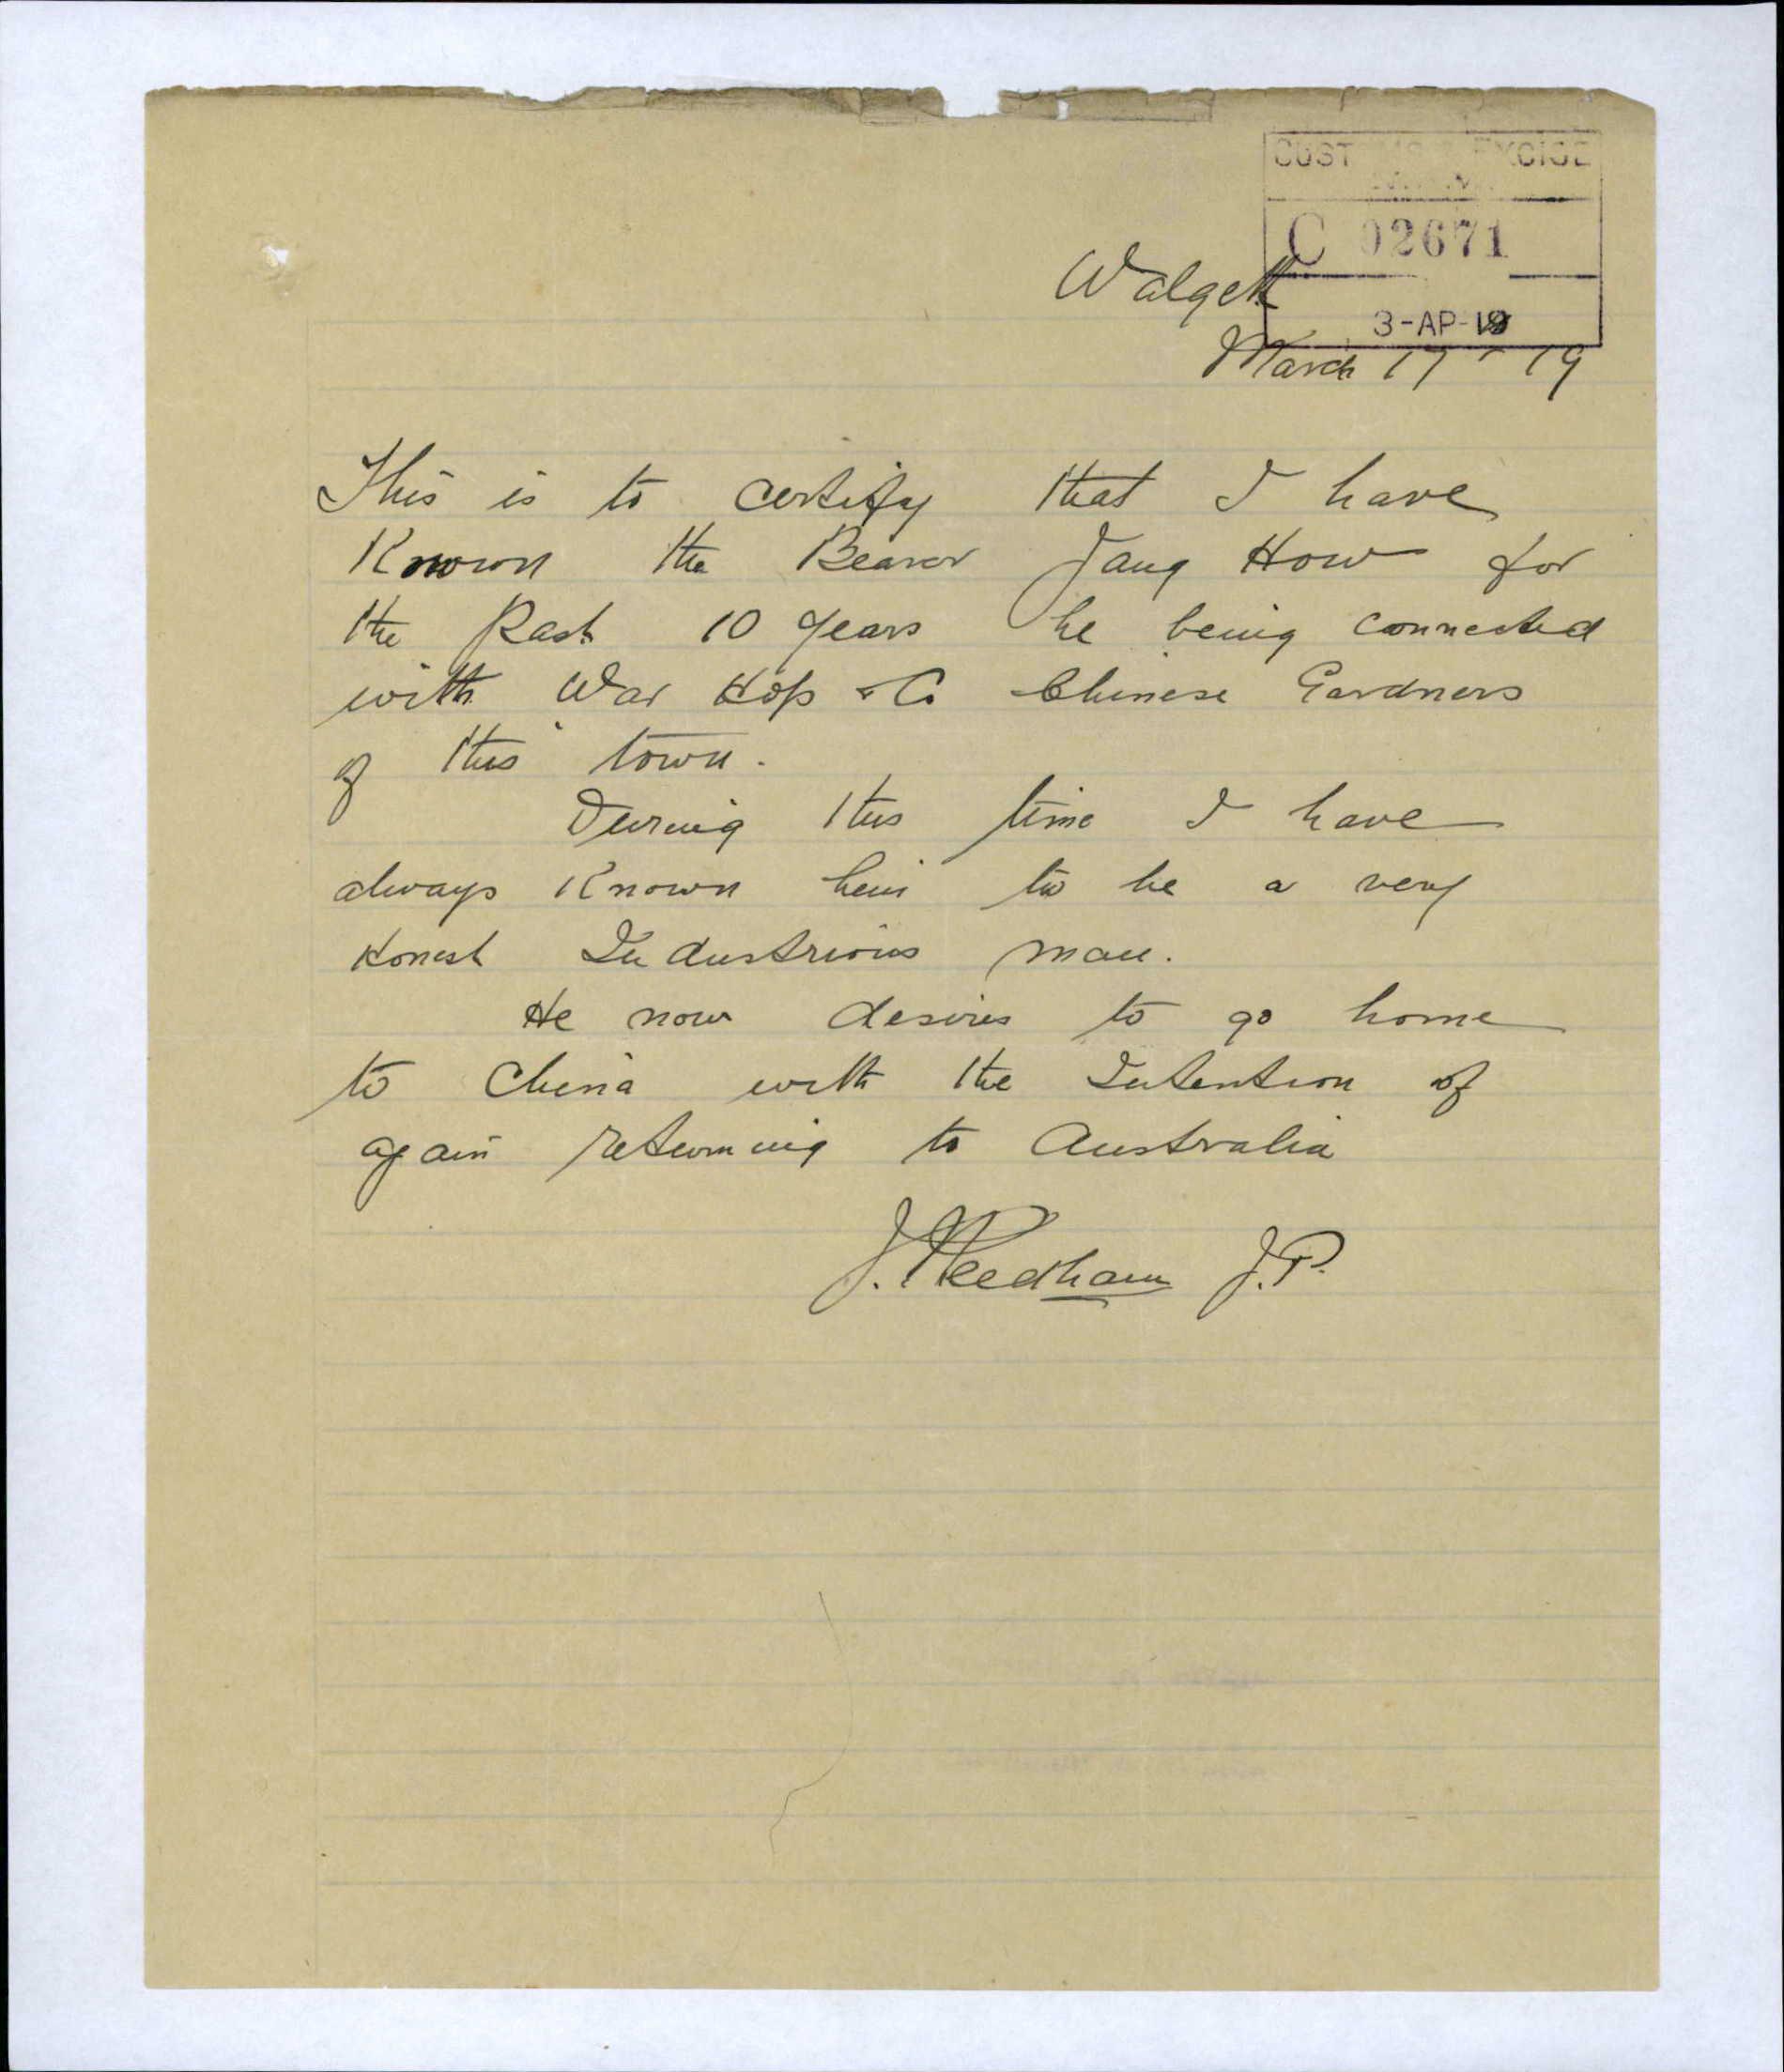 CUST EXCISE
C 02671
3-AP-19
Walgett
March 17 - 19
This is to certify that I have
Known the Bearer Jang How for
the Past 10 years he being connected
with War Hop & Co Chinese Gardners
of this town.
During this time I have
always Known him to be a very
Honest Industrious man.
He now desires to go home
to China with the Intention of
again returning to Australia
J. Needham J.P.